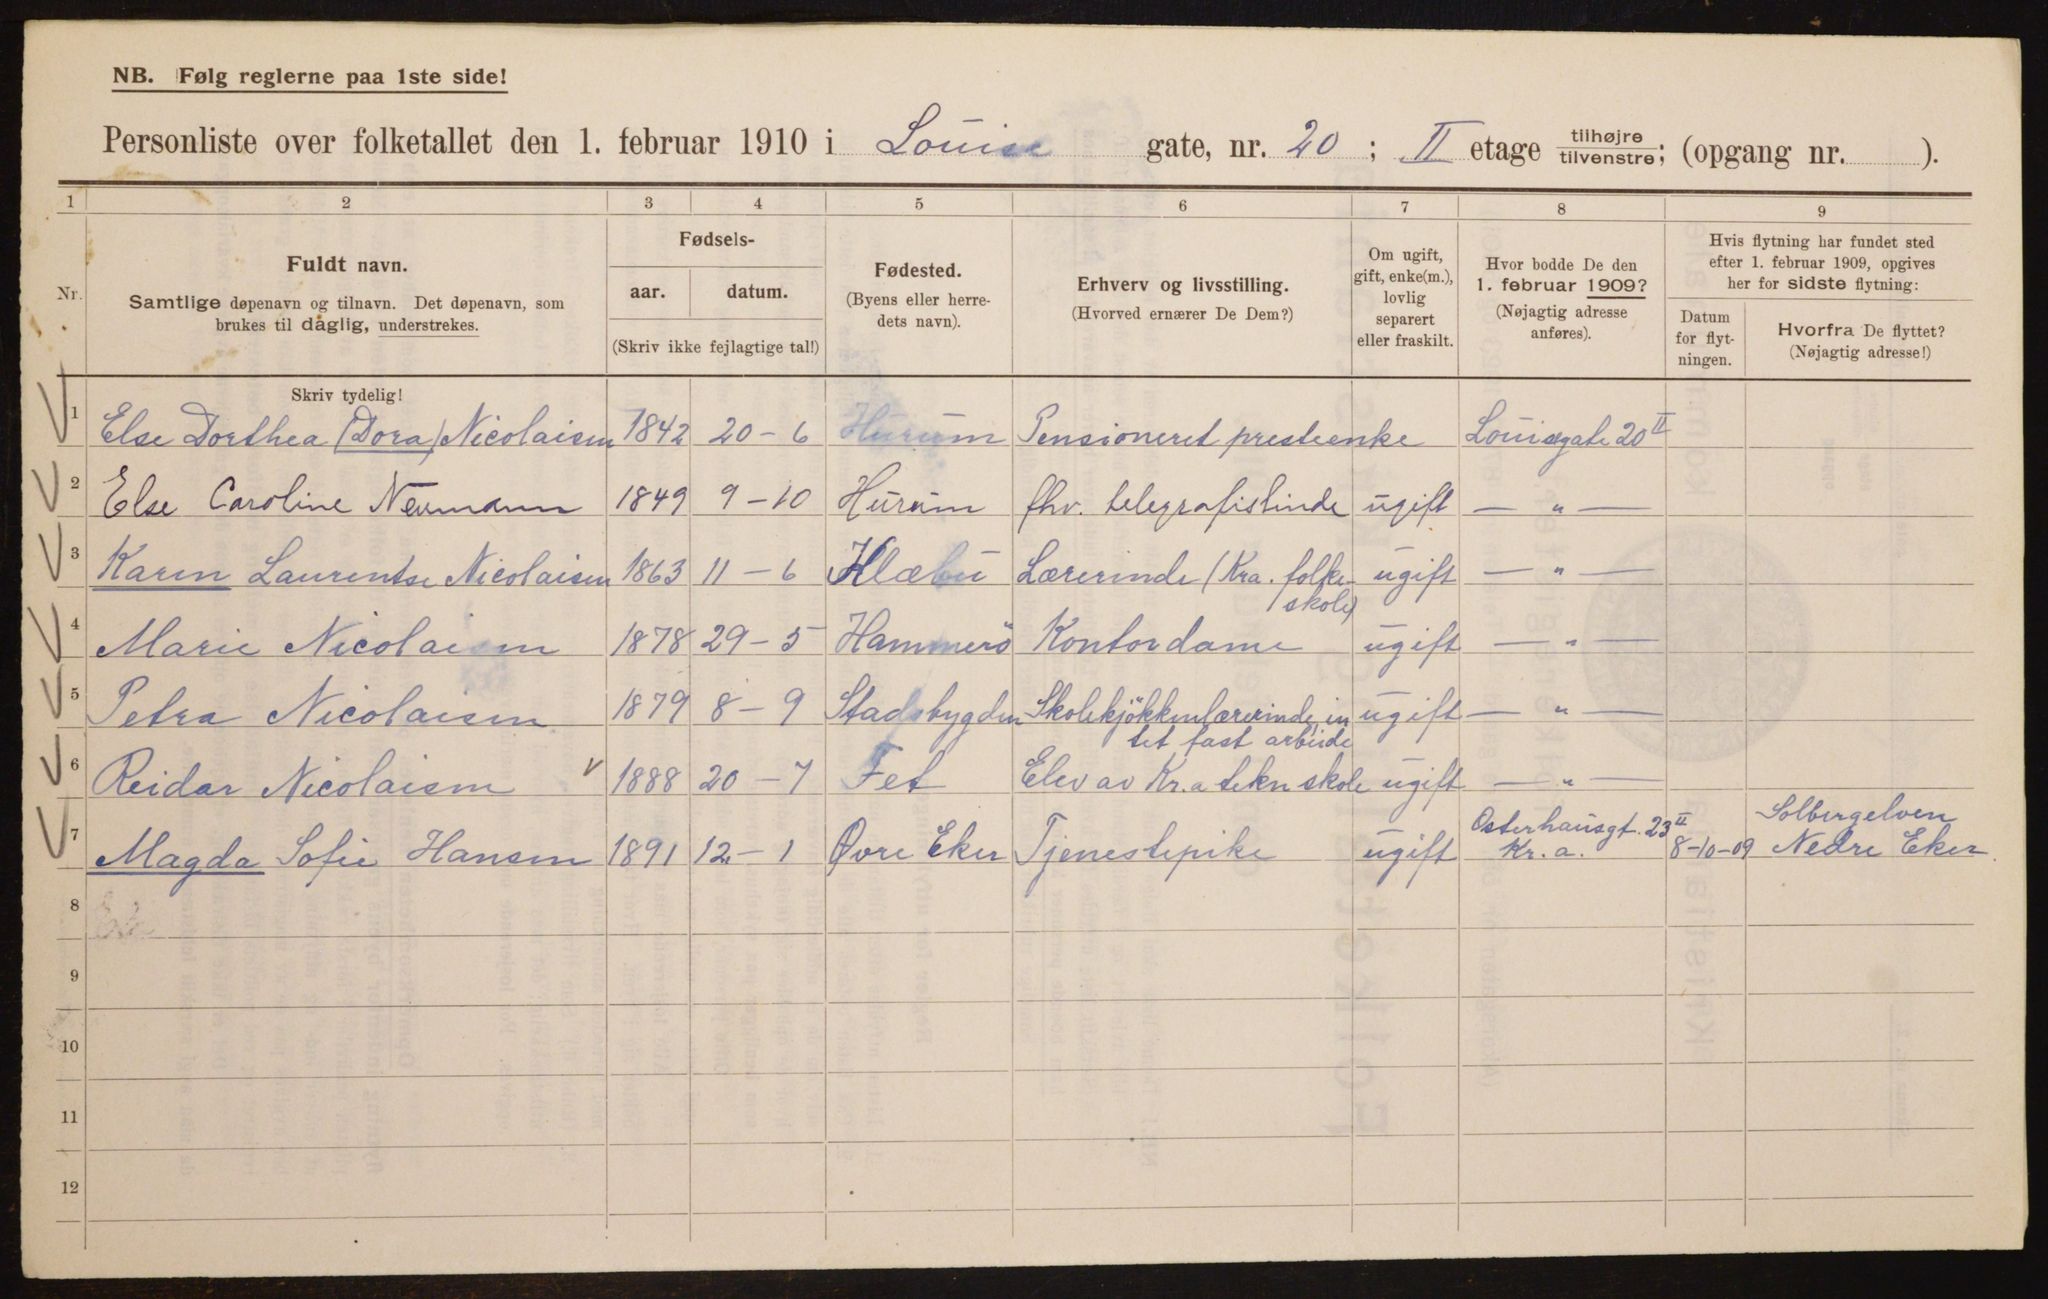 NB. Følg reglerne paa 1ste side!
Personliste over folketallet den 1. februar 1910 i Louise gate, nr. 20; II etage tilhøjre/tilvenstre; (opgang nr. ).
1 2 3 4 5 6 7 8 9
Nr.
Fuldt navn.
Samtlige døpenavn og tilnavn. Det døpenavn, som
brukes til daglig, understrekes.
Skriv tydelig!
Fødsels-
aar. datum.
(Skriv ikke fejlagtige tal!)
Fødested.
(Byens eller herre-
dets navn).
Erhverv og livsstilling.
(Hvorved ernærer De Dem?)
Om ugift,
gift, enke(m.),
lovlig
separert
eller fraskilt.
Hvor bodde De den
1. februar 1909?
(Nøjagtig adresse
anføres).
Hvis flytning har fundet sted
efter 1. februar 1909, opgives
her for sidste flytning:
Datum
for flyt-
ningen.
Hvorfra De flyttet?
(Nøjagtig adresse!)
1 Else Dorthea (Dora) Nicolaisen 1842 20-6 Hurum Pensioneret presteenke Louisegate 20 II
2 Else Caroline Neumann 1849 9-10 Hurum fhv. telegrafistinde ugift — " —
3 Karen Laurentse Nicolaisen 1863 11-6 Klæbu Lærerinde (Kra. folke-
skole) ugift — " —
4 Marie Nicolaisen 1878 29-5 Hammerö Kontordame ugift — " —
5 Petra Nicolaisen 1879 8-9 Stadsbygden Skolekjökkenlærerinde, in
tet fast arbeide ugift — " —
6 Reidar Nicolaisen v 1888 20-7 Fet Elev av Kr.a tekn skole ugift — " —
7 Magda Sofie Hansen 1891 12-1 Øvre Eker Tjenestepike ugift Osterhausgt. 23 II
Kr.a. 8-10-09 Solbergelven
Nedre Eker
8
9
10
11
12